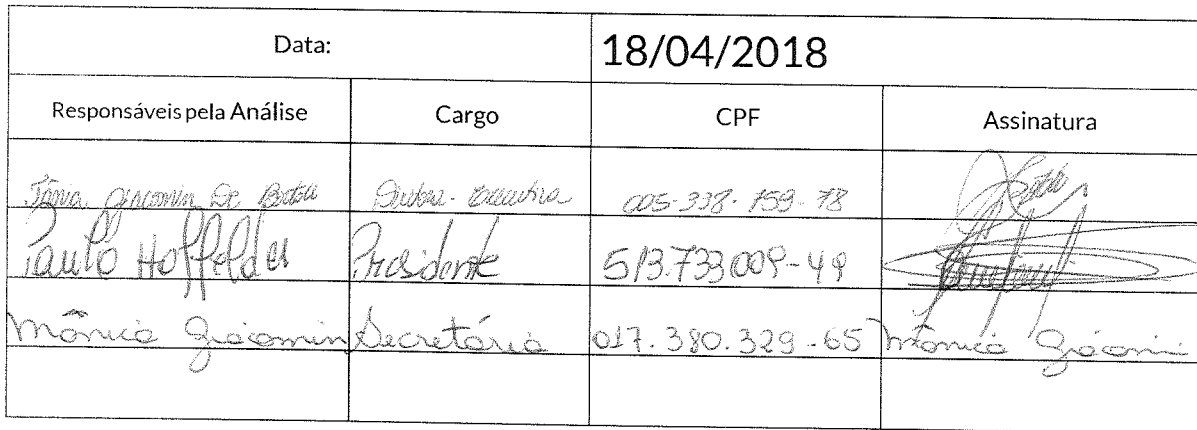 Data: 18/04/2018
Responsáveis pela Análise Cargo CPF Assinatura
Tânia Giacomin De Diretora - Executiva 005-338-759-78
Paulo Hoffelder Presidente 513.733009-49
Mônica Giacomin Secretária 017.380.329-65 Mônica Giacomin